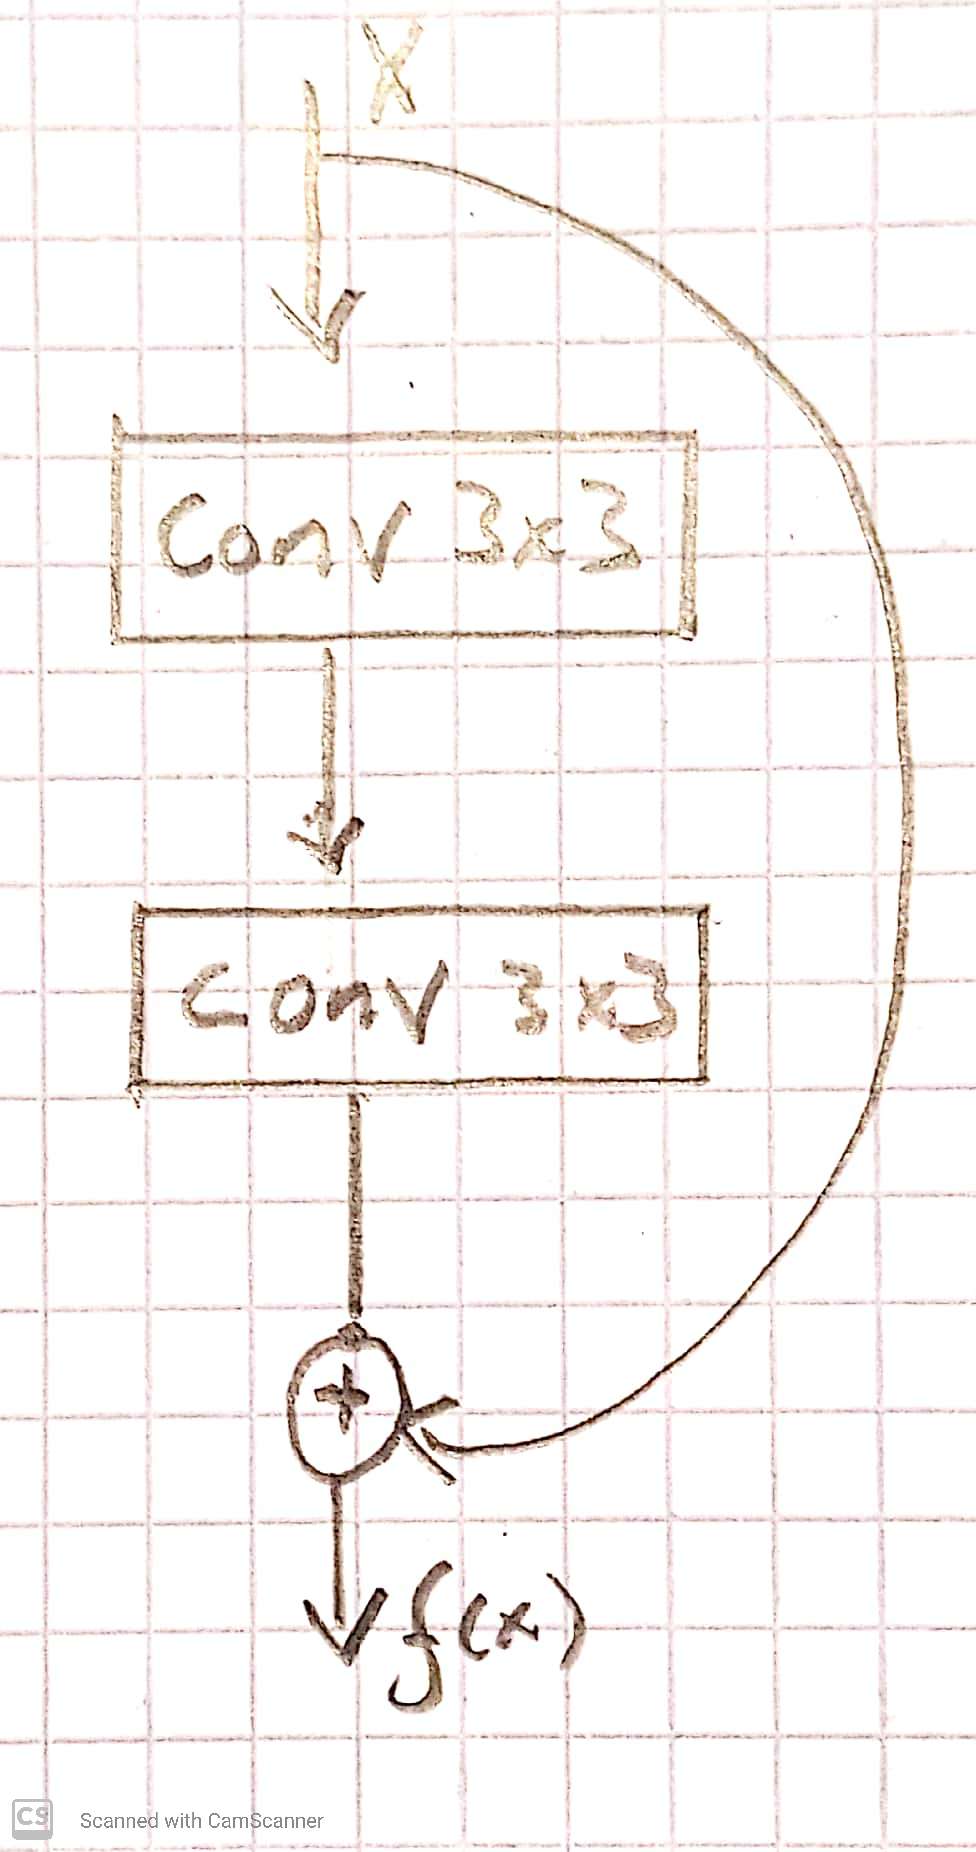 X
Conv 3x3
Conv 3x3
+
f(x)
CS Scanned with CamScanner